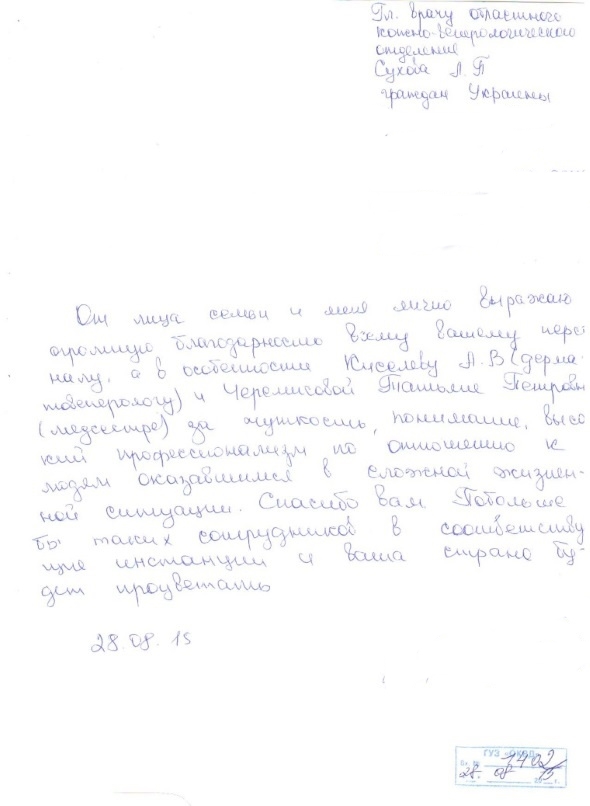 Гл. врачу областного
кожно-венерологического
отделения
Сухова Л.П
граждан Украины
От лица семьи и меня лично выражаю
огромную благодарность всему вашему перс
налу, а в особенности Киселеву А.В (дерма-
товенерологу) и Черемисовой Татьяне Петровн
(медсестре) за чуткость, понимание, высо
кий профессионализм по отношению к
людям оказавшимся в сложной жизнен-
ной ситуации. Спасибо вам Побольше
бы таких сотрудников в соответству
щие инстанции и ваша страна бу-
дет процветать
28.08.15
ГУЗ «ОКВД»
Вх. № 1402
28. 08 2015 г.